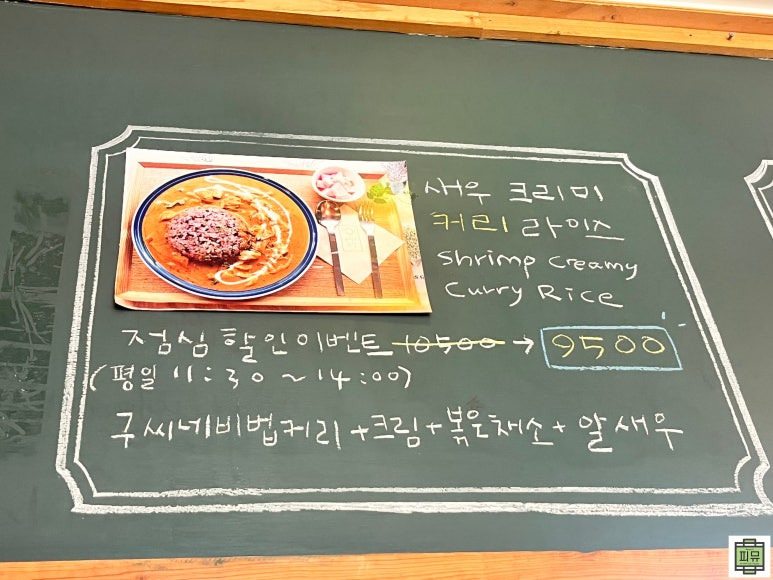 새우 크리미
커리 라이즈
Shrimp Creamy
Curry Rice
점심 할인이벤트 10500 → 9500
(평일 11:30~14:00)
구씨네비법커리+크림+볶은채소+알새우
피뮤